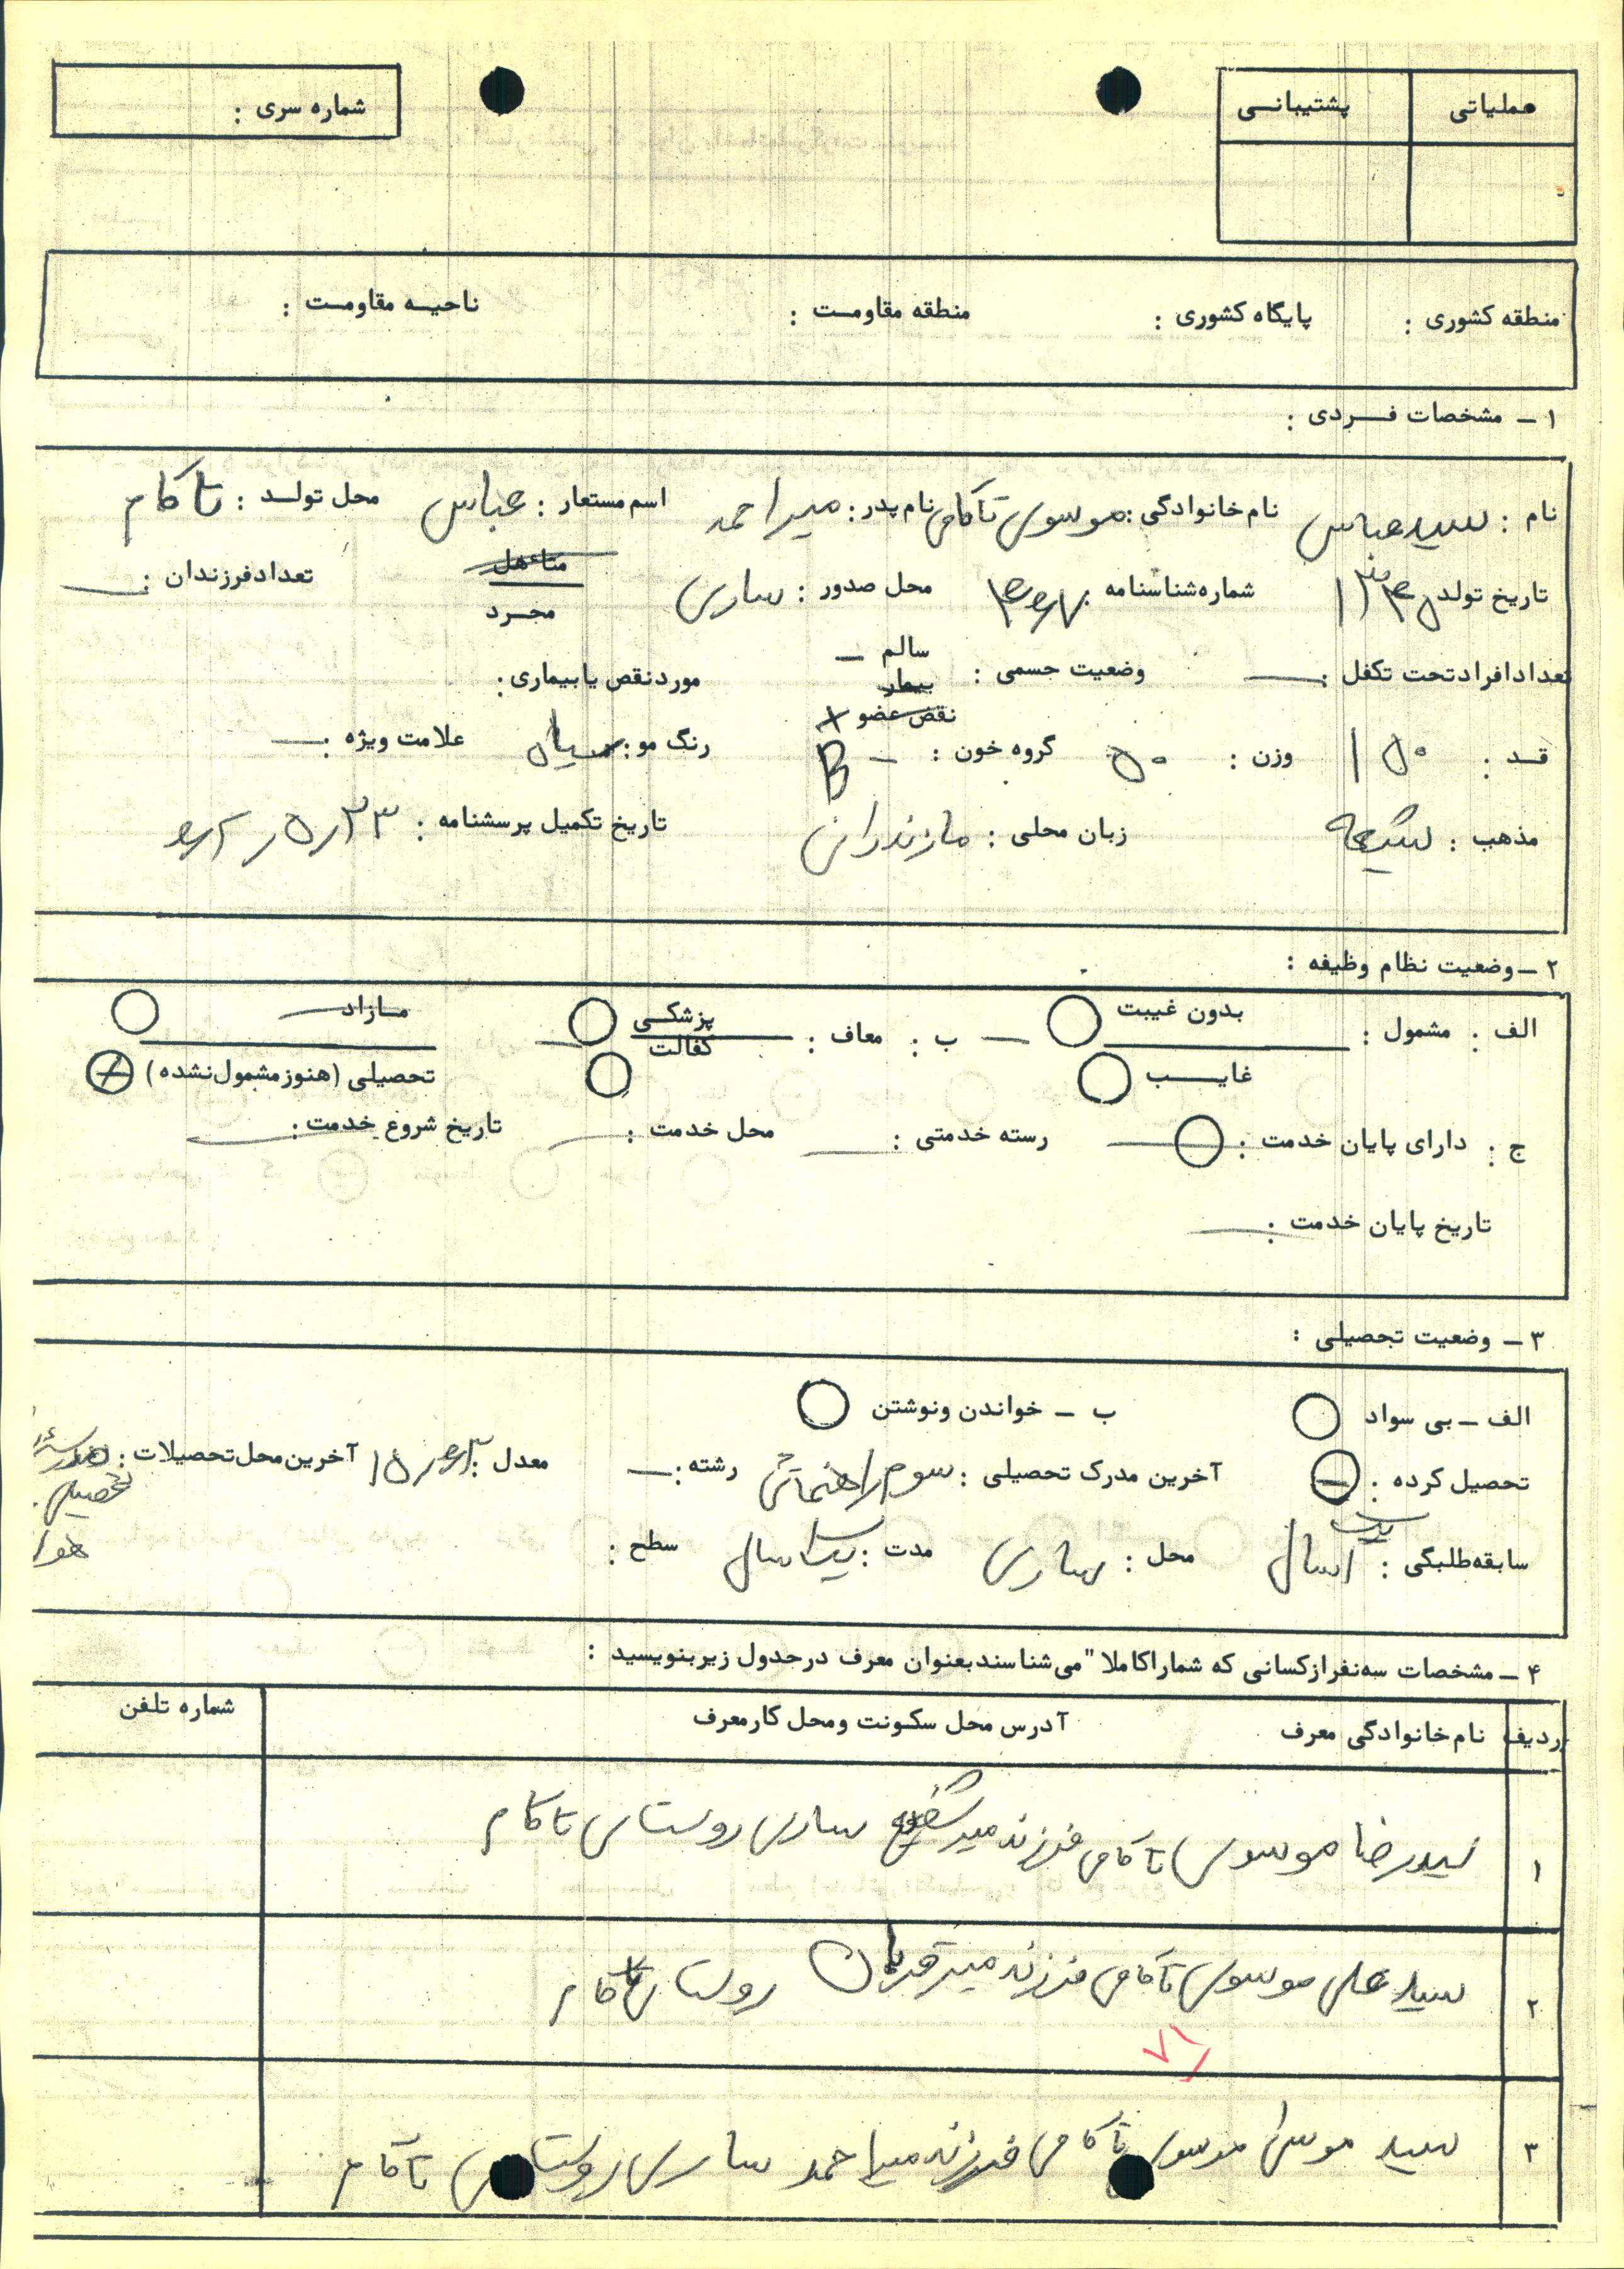 عملیاتی پشتیبانی شماره سری :
منطقه کشوری : پایگاه کشوری : منطقه مقاومت : ناحیه مقاومت :
۱ – مشخصات فردی :
نام : سیدعباس نام خانوادگی : موسوی تاکامی نام پدر : میراحمد اسم مستعار : عباس محل تولد : تاکام
تاریخ تولد شماره شناسنامه محل صدور : ساری متاهل تعداد فرزندان : —
مجرد
تعداد افراد تحت تکفل : — وضعیت جسمی : سالم – مورد نقص یا بیماری :
بیمار
نقص عضو ×
قد : ۱۵۰ وزن : ۵۰ گروه خون : B – رنگ مو : سیاه علامت ویژه : —
مذهب : شیعه زبان محلی : مازندرانی تاریخ تکمیل پرسشنامه : ۲۳ر۵ر۶۲
۲ – وضعیت نظام وظیفه :
الف : مشمول : بدون غیبت — ب : معاف : پزشکی مازاد
غایب کفالت تحصیلی (هنوز مشمول نشده)
ج : دارای پایان خدمت : رسته خدمتی : محل خدمت : تاریخ شروع خدمت :
تاریخ پایان خدمت :
۳ – وضعیت تحصیلی :
الف – بی سواد ب – خواندن ونوشتن
تحصیل کرده : آخرین مدرک تحصیلی : سوم راهنمائی رشته : — معدل : ۱۵٫۶۳ آخرین محل تحصیلات :
سابقه طلبگی : یک سال محل : ساری مدت : یکسال سطح :
۴ – مشخصات سه نفر از کسانی که شما را کاملا" می شناسند بعنوان معرف در جدول زیر بنویسید :
ردیف نام خانوادگی معرف آدرس محل سکونت و محل کار معرف شماره تلفن
۱ سیدرضا موسوی تاکامی فرزند میرشفیع ساری روستای تاکام
۲ سید علی موسوی تاکامی فرزند میرقربان روستای تاکام
۷۱
۳ سید موسی موسوی تاکامی فرزند میراحمد ساری روستای تاکام